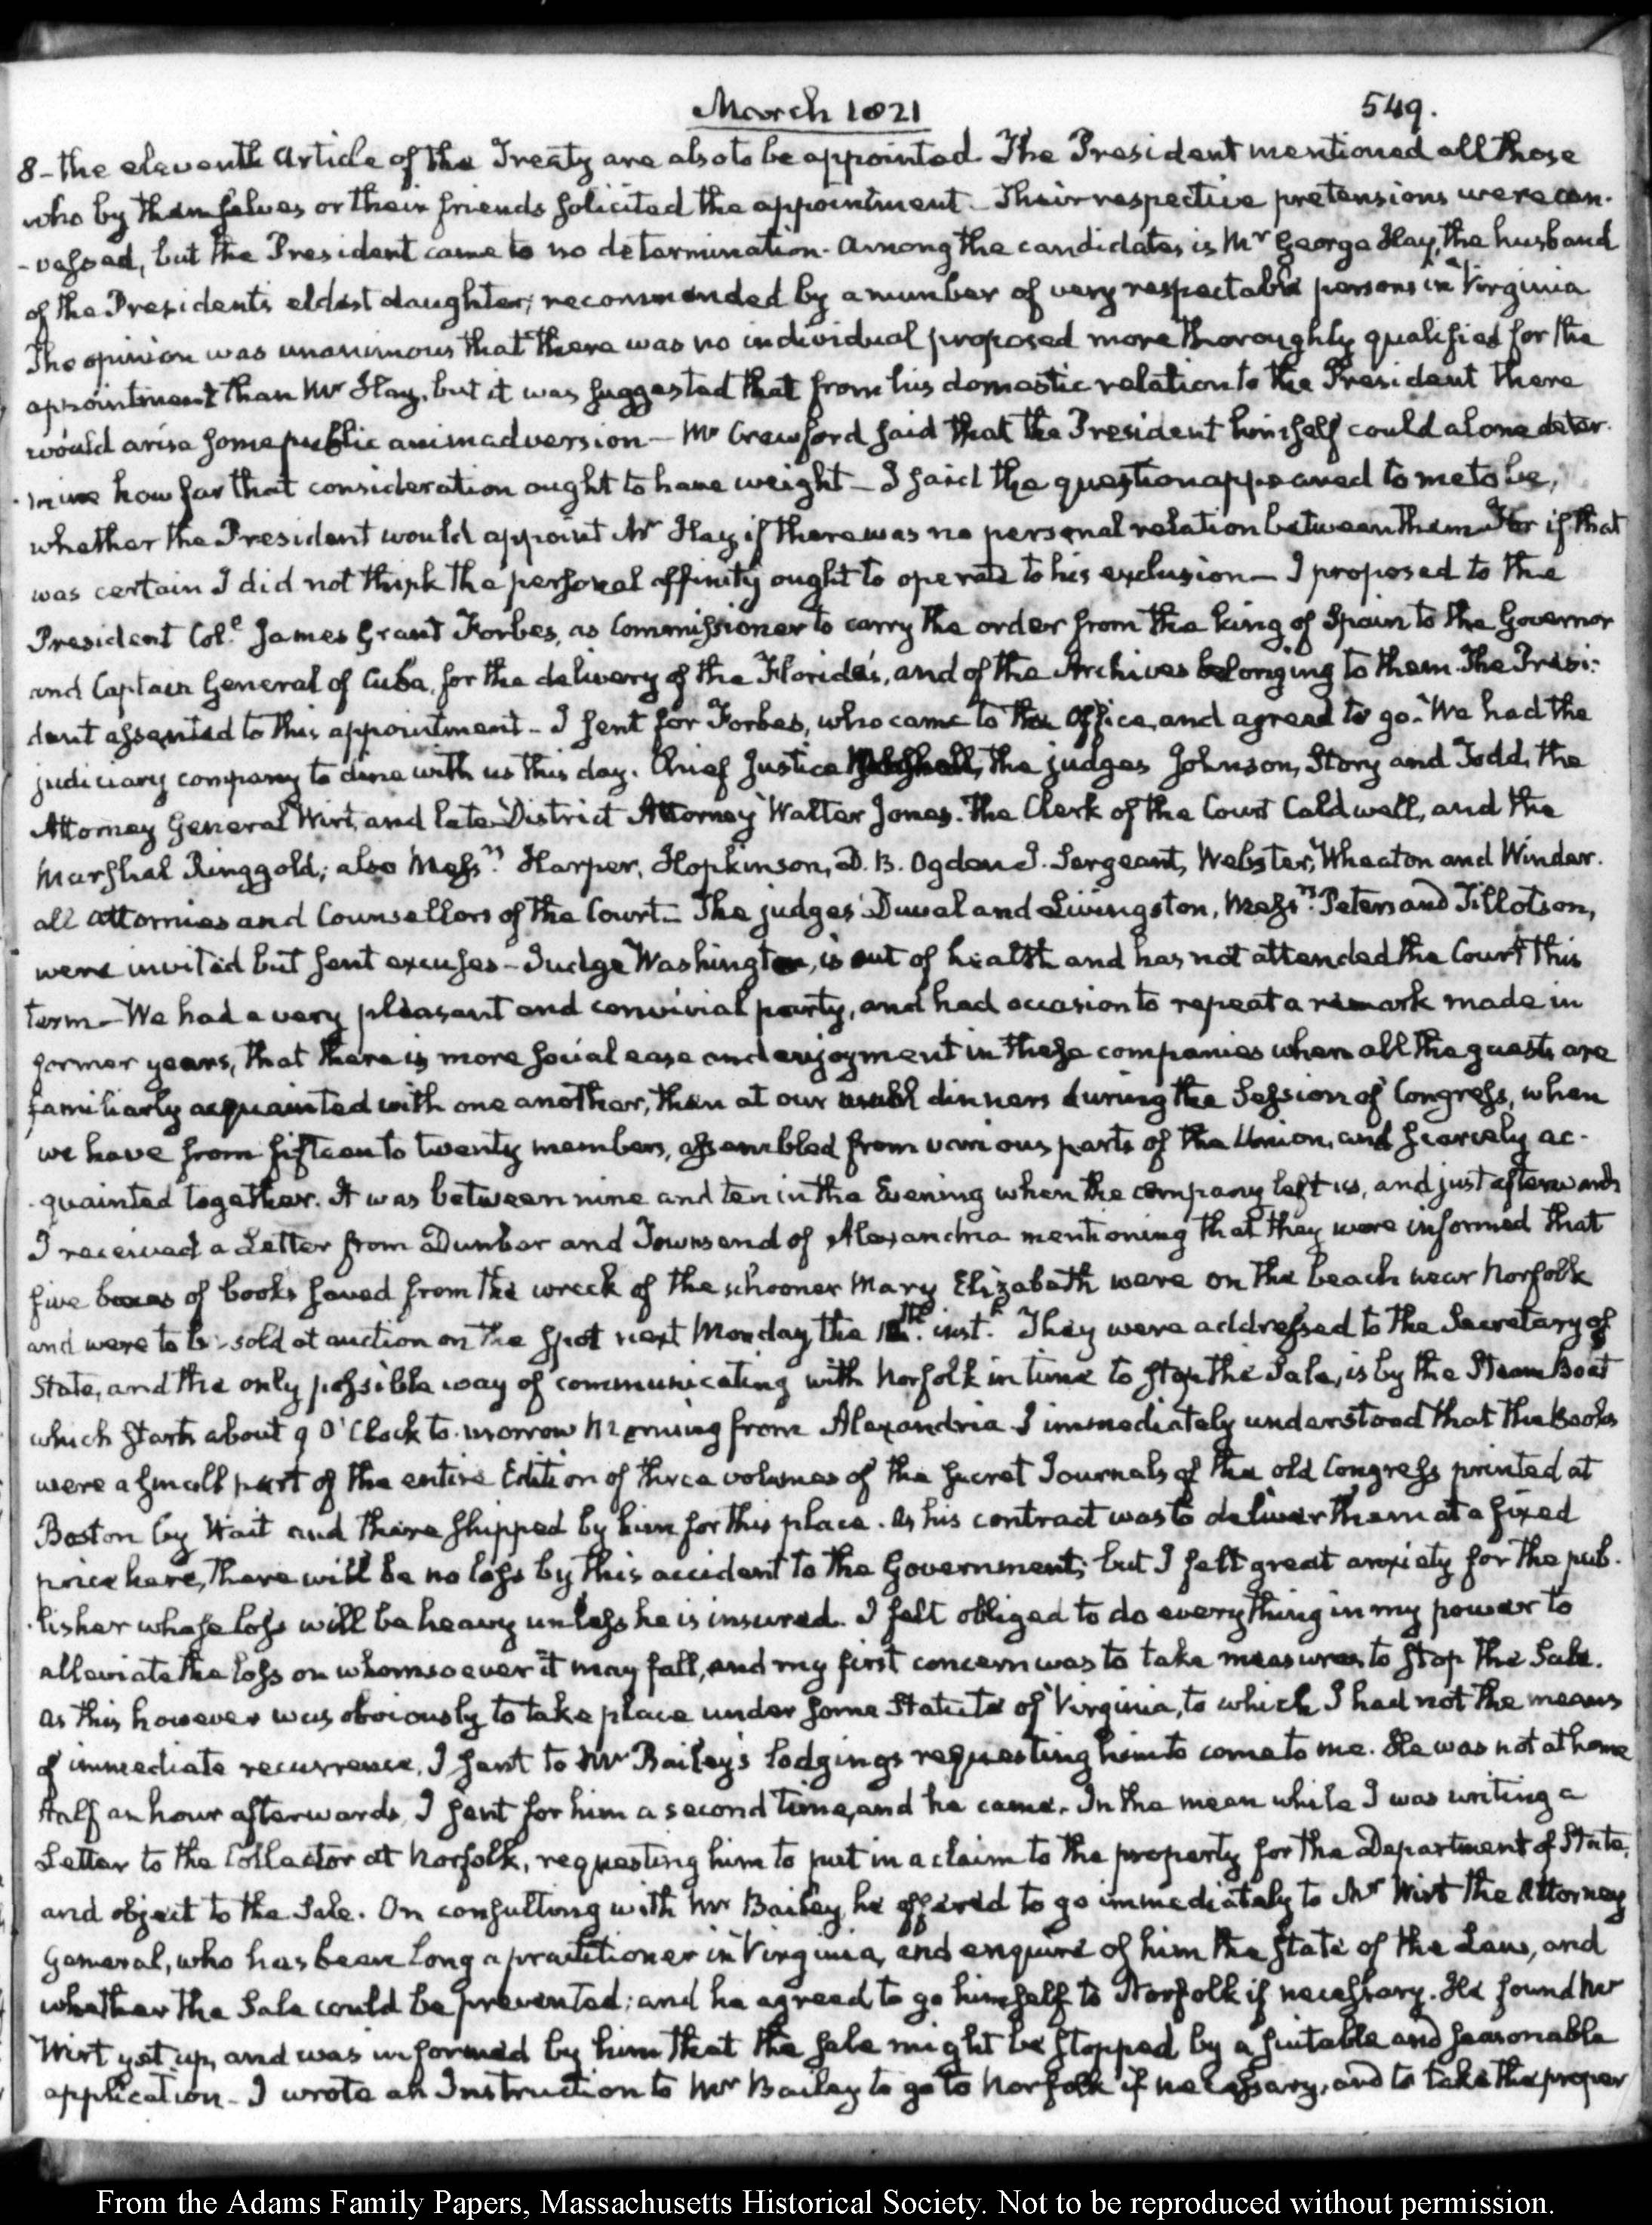 March 1821
549.
8- the eleventh Article of the Treaty are also to be appointed. The President mentioned all those
who by themselves or their friends solicited the appointment. Their respective pretensions were can-
-vassed, but the President came to no determination. Among the candidates is Mr George Hay, the husband
of the Presidents eldest daughter; recommended by a number of very respectable persons in Virginia
The opinion was unanimous that there was no individual proposed more thoroughly qualified for the
appointment than Mr Hay. but it was suggested that from his domestic relation to the President there
would arise some public animadversion - Mr Crawford said that the President himself could alone deter-
-mine how far that consideration ought to have weight - I said the question appeared to me to be,
whether the President would appoint Mr Hay if there was no personal relation between them For if that
was certain I did not think the personal affinity ought to operate to his exclusion - I proposed to the
President Coll. James Grant Forbes, as Commissioner to carry the order from the king of Spain to the Governor
and Captain General of Cuba, for the delivery of the Florida's, and of the Archives belonging to them. The Presi-
dent assented to this appointment - I sent for Forbes, who came to the Office, and agreed to go. We had the
judiciary company to dine with us this day. Chief Justice Marshall, the judges Johnson, Story and Todd, the
Attorney General Wirt, and late District Attorney Walter Jones. The Clerk of the Court Caldwell, and the
Marshal Ringgold; also Messrs. Harper, Hopkinson, D. B. Ogden J. Sergeant, Webster, Wheaton and Winder.
all attornies and Counsellors of the Court - The judges Duval and Livingston, Messrs. Peters and Tillotson,
were invited but sent excuses - Judge Washington, is out of health and has not attended the Court this
term - We had a very pleasant and convivial party, and had occasion to repeat a remark made in
former years, that there is more social ease and enjoyment in these companies when all the guests are
familiarly acquainted with one another, than at our usual dinners during the Session of Congress, when
we have from fifteen to twenty members, assembled from various parts of the Union, and scarcely ac-
-quainted together. It was between nine and ten in the Evening when the company left us, and just afterwards
I received a Letter from Dunbar and Townsend of Alexandria mentioning that they were informed that
five boxes of books saved from the wreck of the schooner Mary Elizabeth were on the beach near Norfolk
and were to be sold at auction on the spot next Monday the 12th. inst. They were addressed to the Secretary of
State, and the only possible way of communicating with Norfolk in time to stop the Sale, is by the Steam Boat
which starts about 9 O'Clock to-morrow Morning from Alexandria. I immediately understood that the Books
were a small part of the entire Edition of three volumes of the secret Journals of the old Congress printed at
Boston by Wait and there shipped by him for this place. As his contract was to deliver them at a fixed
price here, there will be no loss by this accident to the Government; but I felt great anxiety for the pub-
-lisher whose loss will be heavy unless he is insured. I felt obliged to do every thing in my power to
alleviate the loss on whomsoever it may fall, and my first concern was to take measures to stop the Sale.
As this however was obviously to take place under some Statute of Virginia, to which I had not the means
of immediate recurrence, I sent to Mr Bailey's lodgings requesting him to come to me. He was not at home
Half an hour afterwards, I sent for him a second time, and he came. In the mean while I was writing a
Letter to the Collector at Norfolk, requesting him to put in a claim to the property for the Department of State,
and object to the Sale. On consulting with Mr Bailey, he offered to go immediately to Mr Wirt the Attorney
General, who has been long a practitioner in Virginia, and enquire of him the State of the Law, and
whether the Sale could be prevented; and he agreed to go himself to Norfolk if necessary. He found Mr
Wirt yet up, and was informed by him that the sale might be stopped by a suitable and seasonable
application - I wrote an Instruction to Mr Bailey to go to Norfolk if necessary, and to take the proper
From the Adams Family Papers, Massachusetts Historical Society. Not to be reproduced without permission.